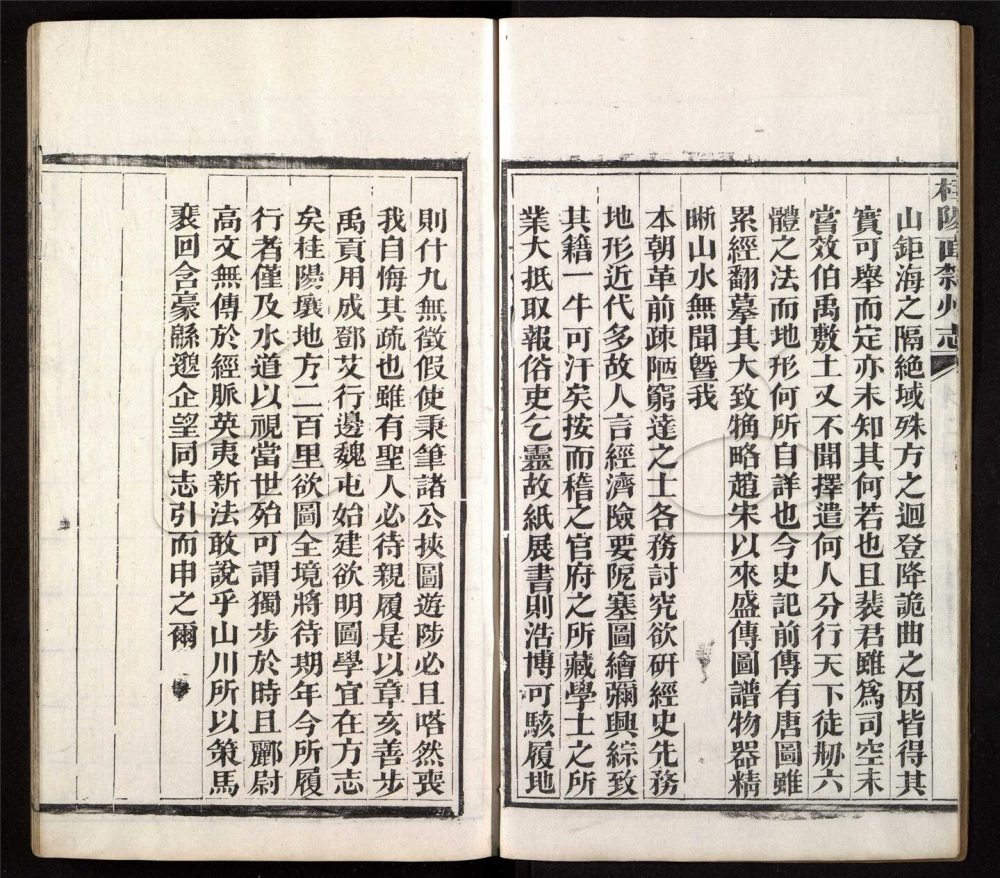 桂陽直隸州志
山鉅海之隔絕域殊方之迴登降詭曲之因皆得其
實可舉而定亦未知其何若也且裴君雖為司空未
嘗效伯禹敷土又不聞擇遣何人分行天下徒刱六
體之法而地形何所自詳也今史記前傳有唐圖雖
累經翻摹其大致觕略趙宋以來盛傳圖譜物器精
晰山水無聞曁我
本朝革前疎陋窮達之士各務討究欲研經史先務
地形近代多故人言經濟險要阨塞圖繪彌興綜致
其籍一牛可汗矣按而稽之官府之所藏學士之所
業大抵取報俗吏乞靈故紙展書則浩博可駭履地
則什九無徵假使秉筆諸公挾圖遊陟必且喀然喪
我自悔其疏也雖有聖人必待親履是以章亥善步
禹貢用成鄧艾行邊魏屯始建欲明圖學宜在方志
矣桂陽壤地方二百里欲圖全境將待期年今所履
行者僅及水道以視當世殆可謂獨步於時且酈尉
高文無傳於經脈英夷新法敢說乎山川所以策馬
裵回含豪緜邈企望同志引而申之爾